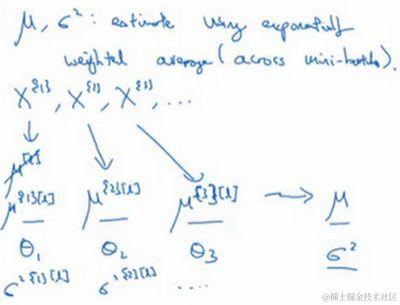 μ, σ²: estimate using exponentially
weighted average (across mini-batches).
X^{1}, X^{2}, X^{3}, ...
μ^[l]
μ^{1}[l] μ^{2}[l] μ^{3}[l] → μ
θ₁ θ₂ θ₃ σ²
σ²^{1}[l] σ²^{2}[l] ....
@稀土掘金技术社区